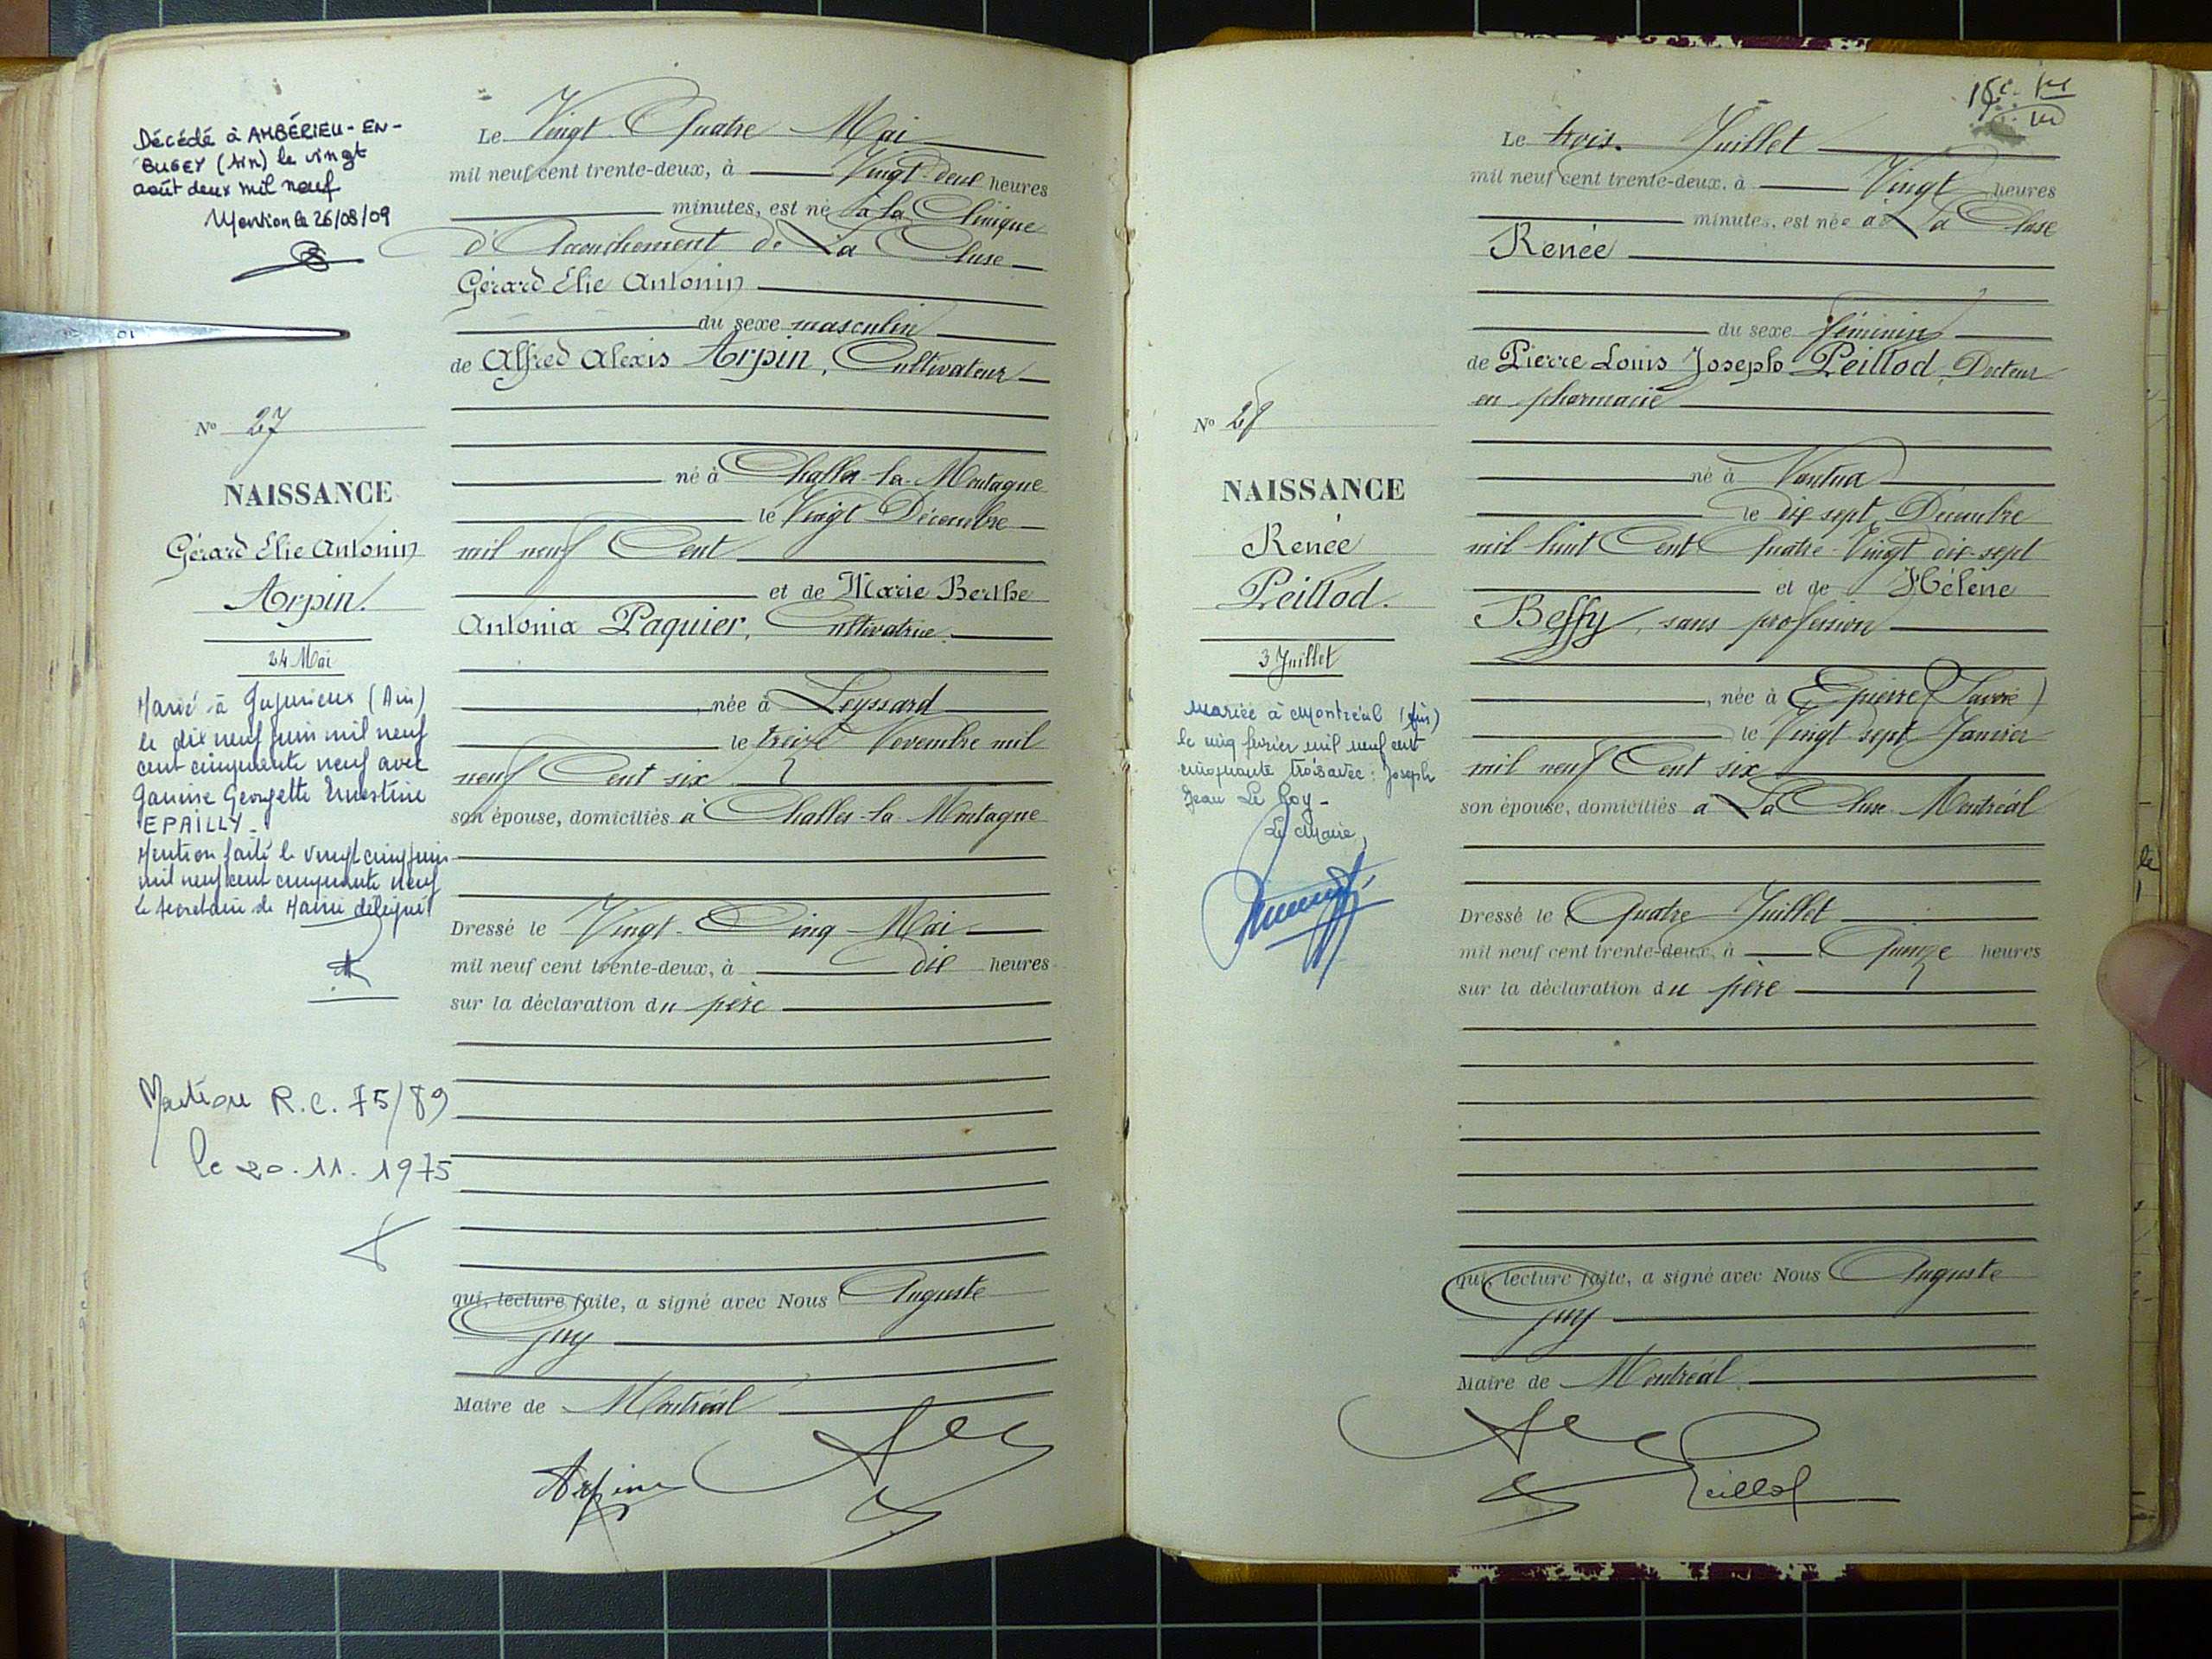 Décédé à AMBÉRIEU-EN-
BUGEY (Ain) le vingt
août deux mil neuf
Mention le 26/08/09
N° 27
NAISSANCE
Gérard Elie Antonin
Arpin.
24 Mai
Marié à Jujurieux (Ain)
le dix neuf juin mil neuf
cent cinquante neuf avec
Janine Georgette Ernestine
EPAILLY_
Mention faite le vingt cinq juin
mil neuf cent cinquante neuf
le secrétaire de Mairie délégué
Mention R.C. 75/89
le 20.11.1975
Le Vingt Quatre Mai
mil neuf cent trente-deux, à Vingt deux heures
minutes, est né à la Clinique
d'Accouchement de La Cluse
Gérard Elie Antonin
du sexe masculin
de Alfred Alexis Arpin, Cultivateur
né à Challes-la-Montagne
le Vingt Décembre
mil neuf Cent
et de Marie Berthe
Antonia Paquier, Cultivatrice
, née à Leyssard
le treize Novembre mil
neuf Cent six
son épouse, domiciliés à Challes-la-Montagne
Dressé le Vingt-Cinq Mai
mil neuf cent trente-deux, à dix heures
sur la déclaration du père
qui, lecture faite, a signé avec Nous Auguste
Guy
Maire de Montréal
Arpin
N° 28
NAISSANCE
Renée
Peillod.
3 Juillet
Mariée à Montréal (Ain)
le cinq février mil neuf cent
cinquante trois avec : Joseph
Jean Le Goy -
Le Maire,
Le trois. Juillet
mil neuf cent trente-deux, à Vingt heures
minutes, est née à La Cluse
Renée
du sexe féminin
de Pierre Louis Joseph Peillod, Docteur
en pharmacie
né à Nantua
le dix sept Décembre
mil huit Cent Quatre-Vingt dix-sept
et de Hélène
Beffy, sans profession
, née à Epierre (Savoie)
le Vingt sept Janvier
mil neuf Cent six
son épouse, domiciliés à La Cluse Montréal
Dressé le Quatre Juillet
mil neuf cent trente-deux, à Quinze heures
sur la déclaration du père
qui, lecture faite, a signé avec Nous Auguste
Guy
Maire de Montréal
Peillod